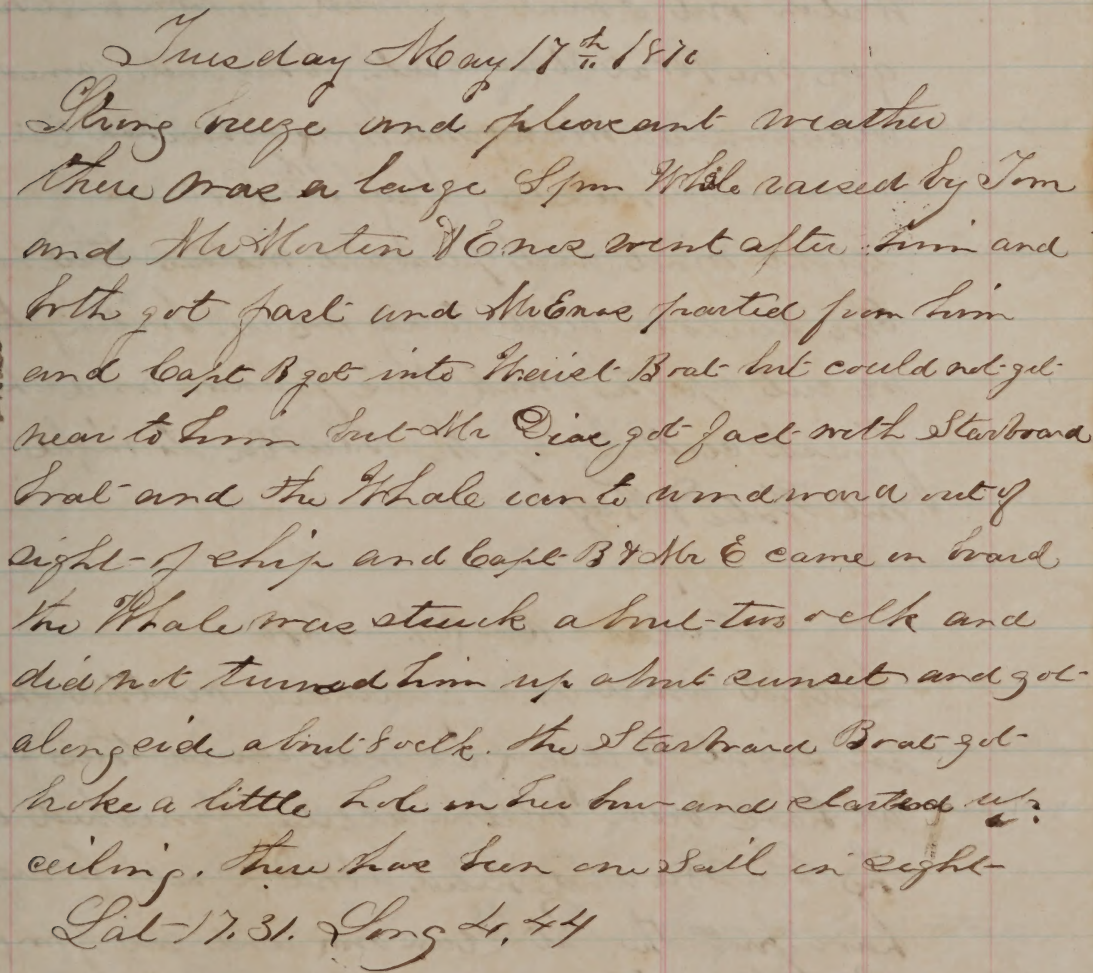 Tuesday May 17th 1870
Strong breeze and pleasant weather
there was a large Spm Whale raised by Tom
and Mr Morten & Enos went after him and
both got fast and Mr Enos parted from him
and Capt B got into Waist Boat but could not get
near to him but Mr Dias got fast with Starboard
boat and the Whale ran to windward out of
sight of ship and Capt B & Mr E came on board
the Whale was struck about two oclk and
did not turned him up about sunset and got
alongside about 8 oclk. the Starboard Boat got
broke a little hole in her bow and started up
ceiling. there has been one Sail in sight
Lat 17.31. Long 4.44